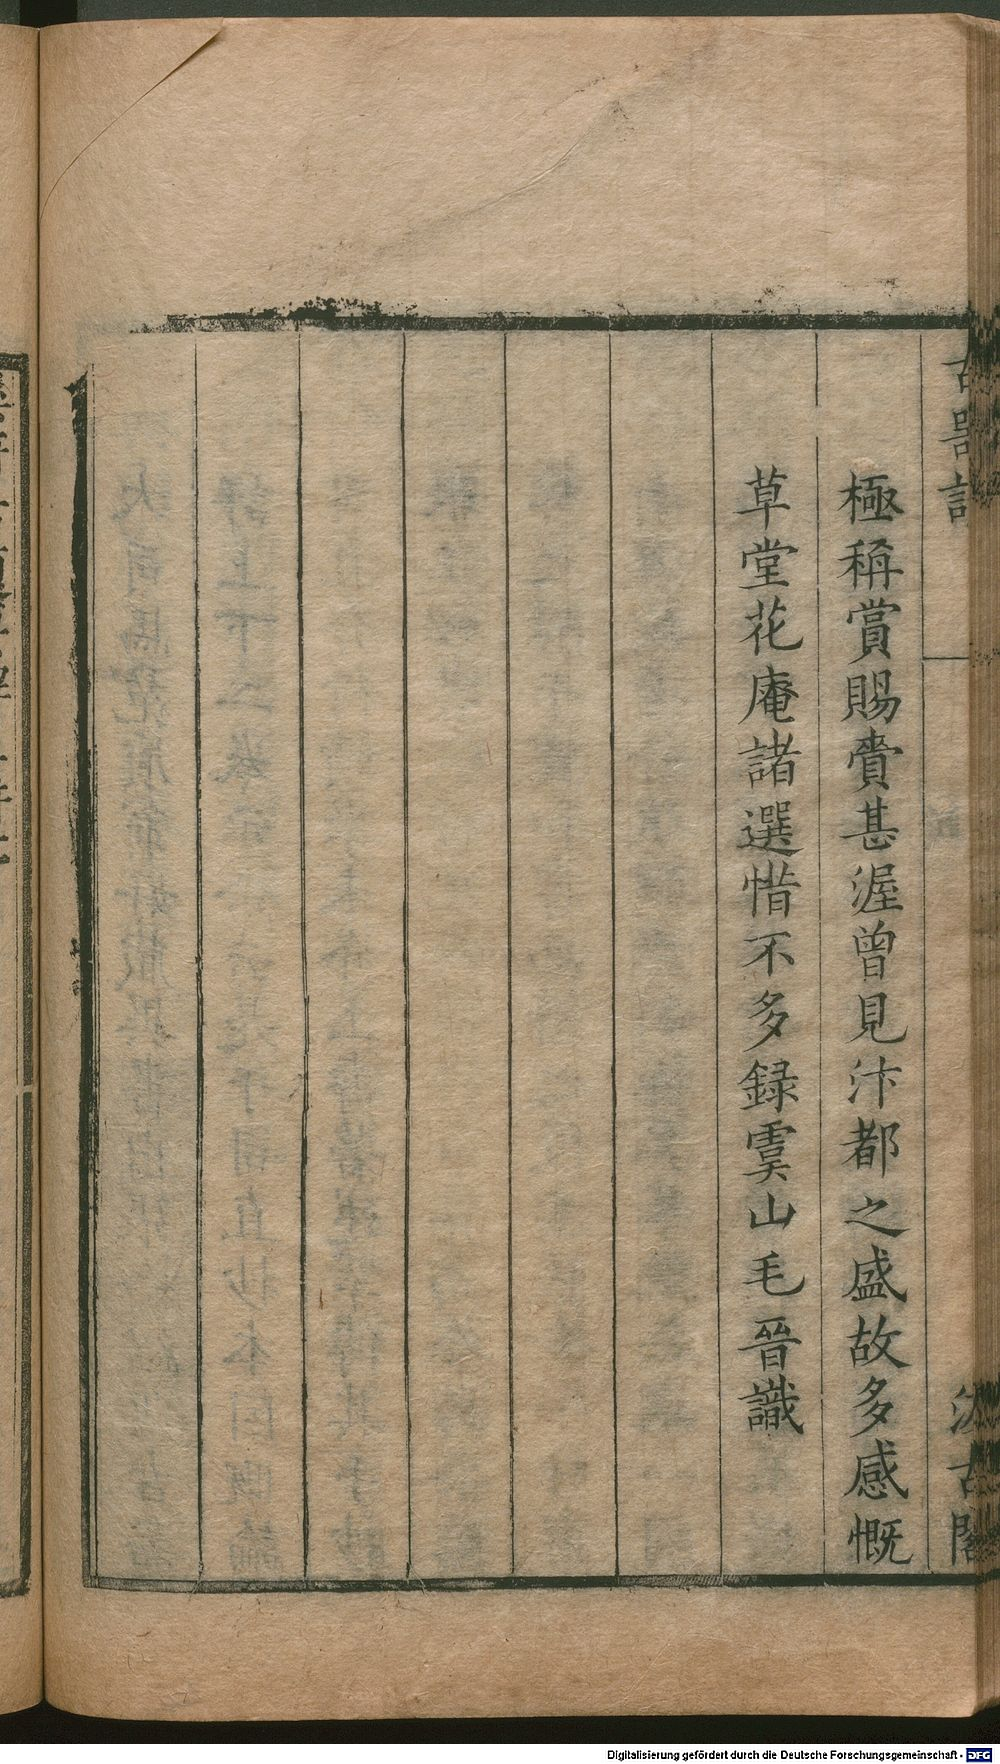 極稱賞賜賚甚渥曾見汴都之盛故多感慨
草堂花庵諸選惜不多録虞山毛晉識
汲古閣
Digitalisierung gefördert durch die Deutsche Forschungsgemeinschaft - DFG